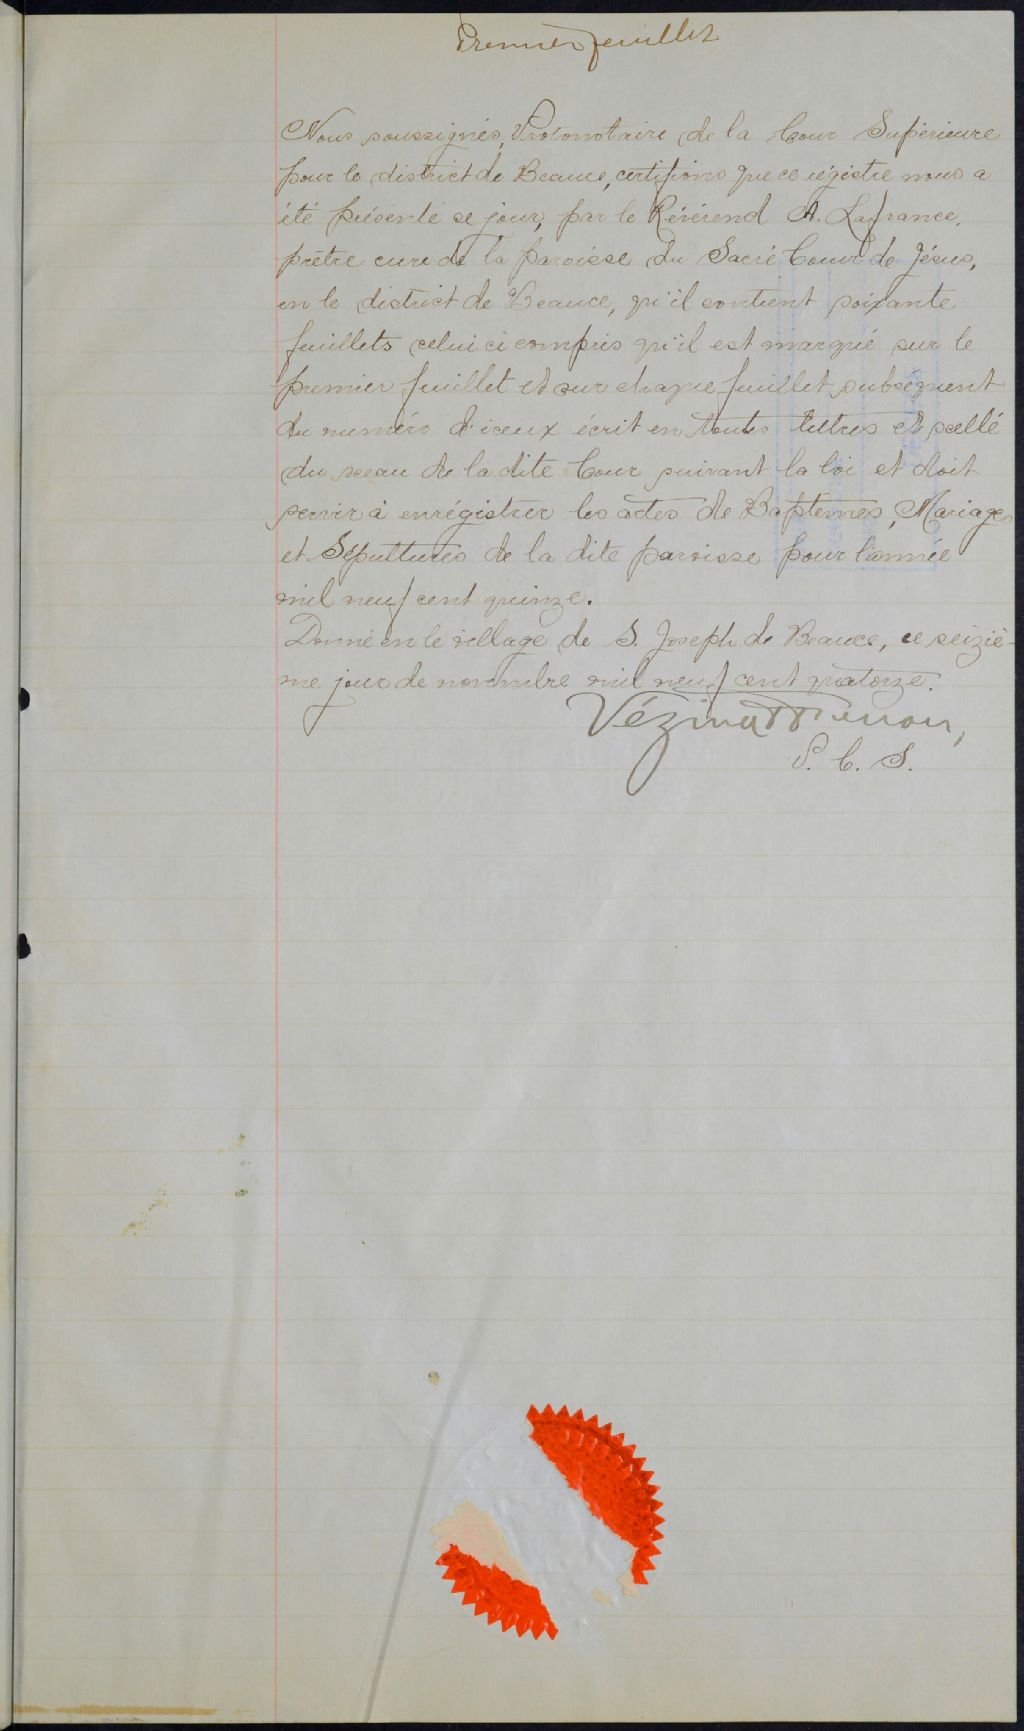 Premier feuillet
Nous soussignés, Protonotaire de la Cour Supérieure
pour le district de Beauce, certifions que ce régistre nous a
été présenté ce jour, par le Révérend A. Lafrance,
prêtre curé de la paroisse du Sacré Coeur de Jésus,
en le district de Beauce, qu'il contient soixante
feuillets celui ci compris qu'il est marqué sur le
premier feuillet et sur chaque feuillet subséquent
du numéro d'iceux écrit en toutes lettres et scellé
du sceau de la dite Cour suivant la loi et doit
servir à enrégistrer les actes de Baptemes, Mariages
et Sépultures de la dite paroisse pour l'année
mil neuf cent quinze.
Donné en le village de S. Joseph de Beauce, ce seiziè-
me jour de novembre mil neuf cent quatorze.
Vézina
P. C. S.